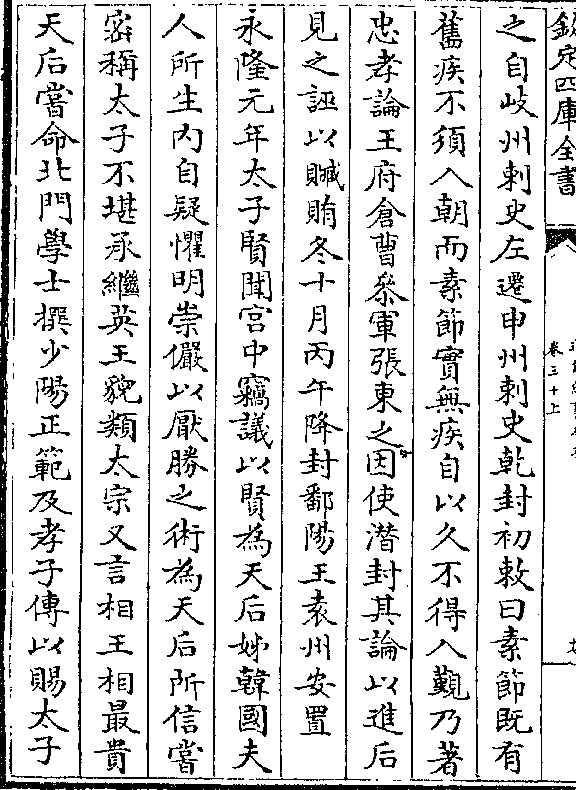 欽定四庫全書
卷三十上
之自岐州刺史左遷申州刺史乾封初敕曰素節既有
舊疾不須入朝而素節實無疾自以久不得入覲乃著
忠孝論王府倉曹叅軍張東之因使潛封其論以進后
見之誣以贓賄冬十月丙午降封鄱陽王袁州安置
永隆元年太子賢聞宮中竊議以賢為天后姊韓國夫
人所生內自疑懼明崇儼以厭勝之術為天后所信嘗
宻稱太子不堪承繼英王貌類太宗又言相王相最貴
天后嘗命北門學士撰少陽正範及孝子傳以賜太子